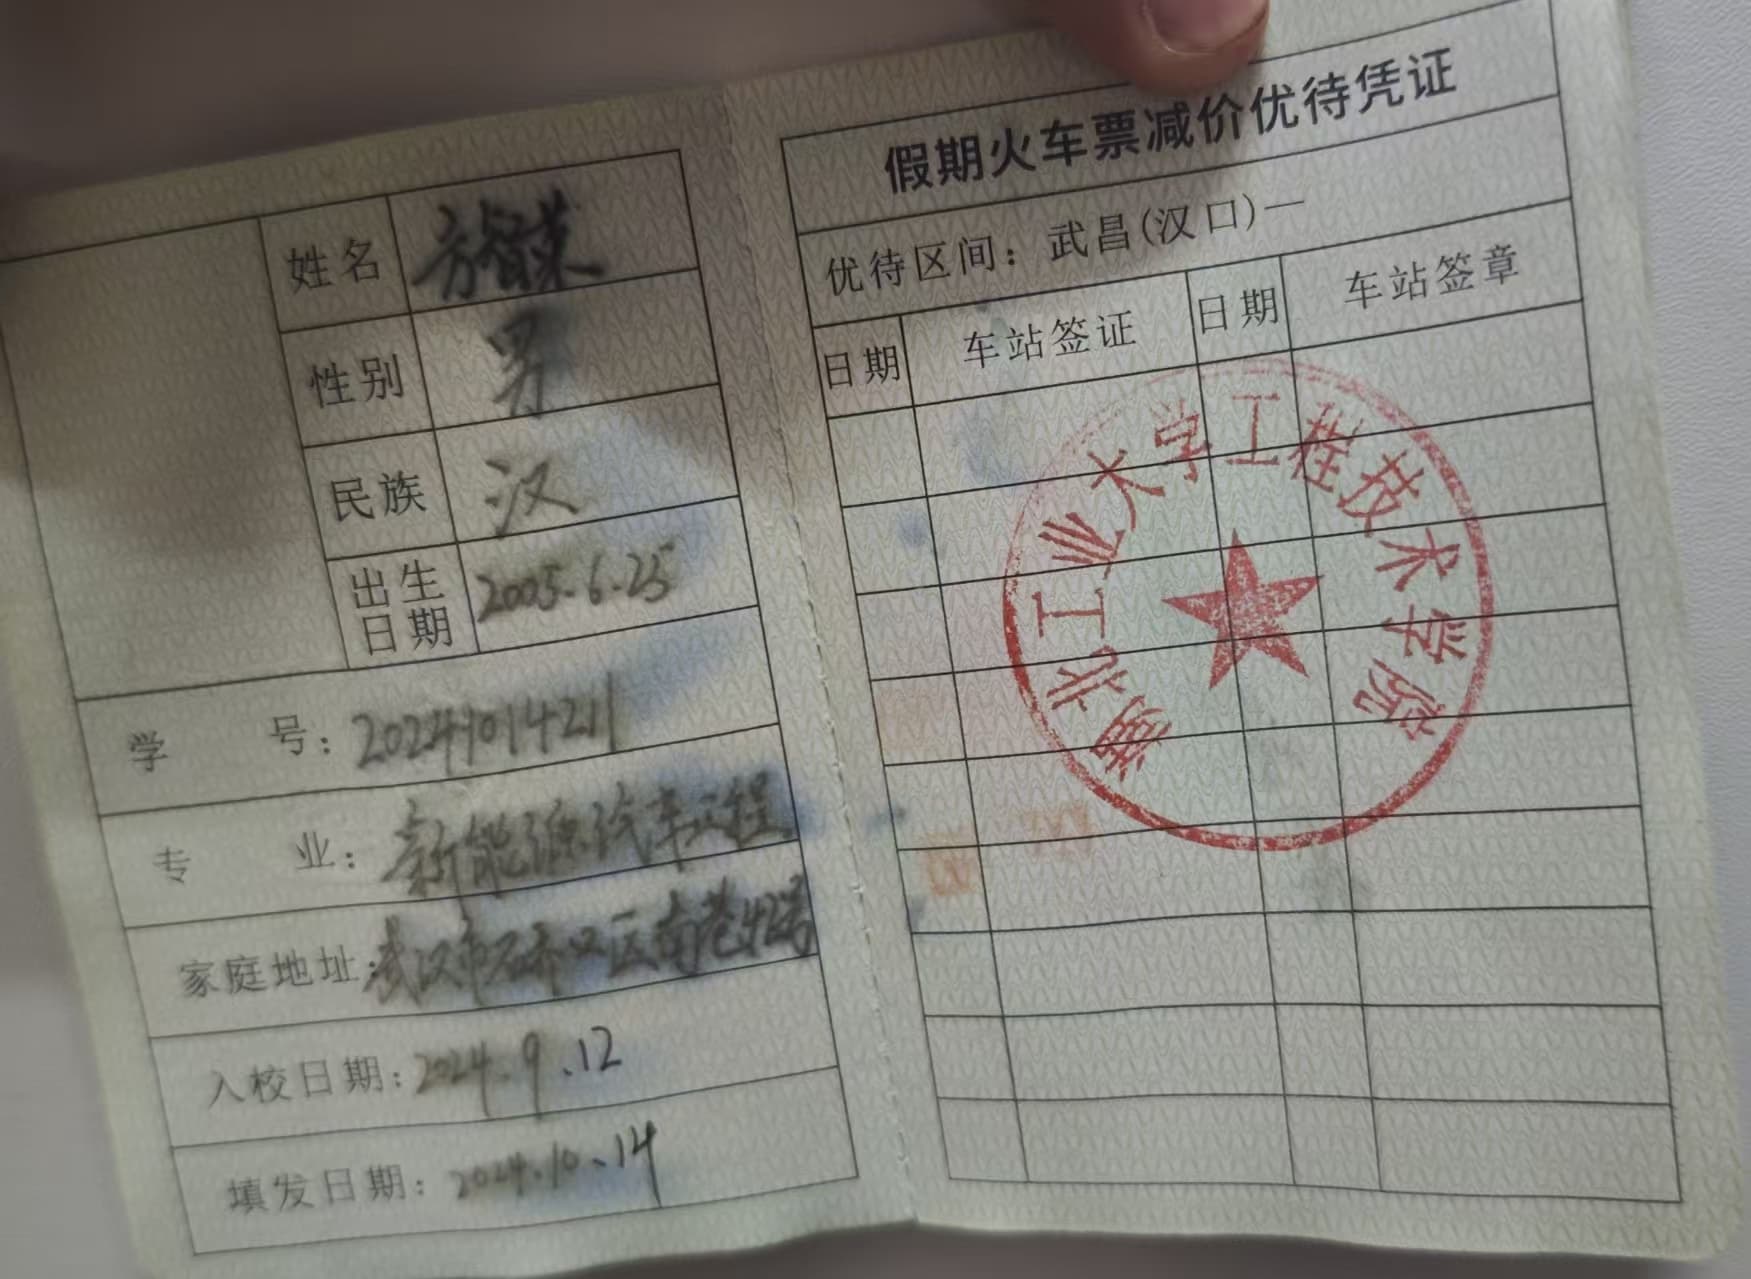 姓名 方
性别 男
民族 汉
出生日期 2005.6.25
学号：20241014211
专业：新能源汽车工程
家庭地址：武汉市石乔口区南巷
入校日期：2024.9.12
填发日期：2024.10.14
假期火车票减价优待凭证
优待区间：武昌(汉口)—
日期 车站签证 日期 车站签章
湖北工业大学工程技术学院